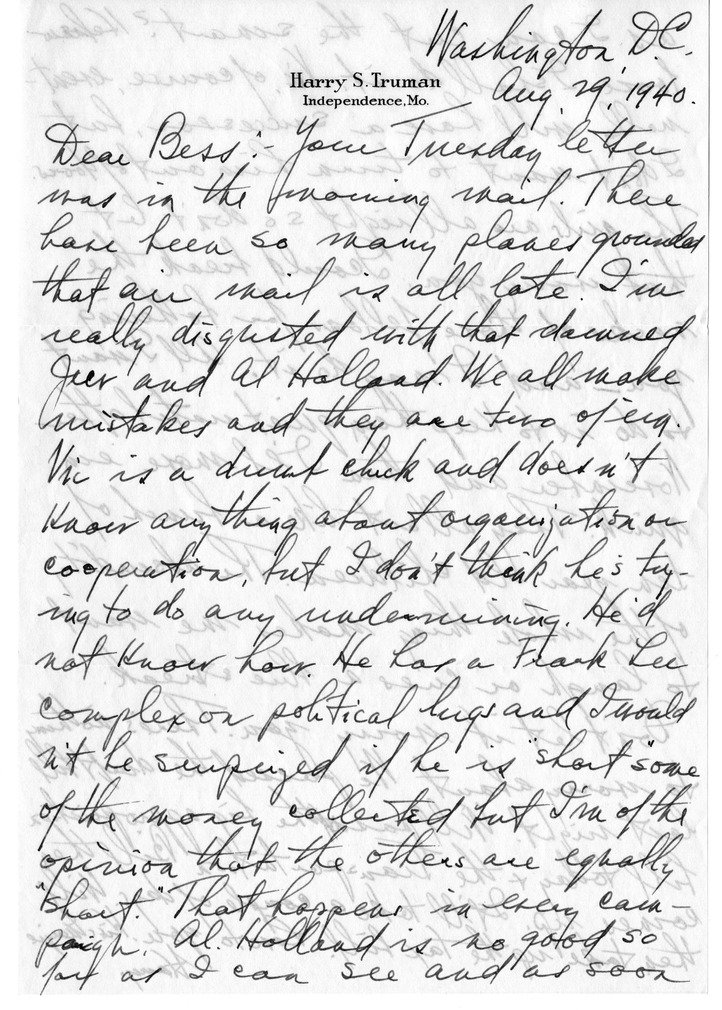 Washington D.C.
Harry S. Truman
Independence, Mo.
Aug. 29, 1940.
Dear Bess:- Your Tuesday letter
was in the morning mail. There
have been so many planes grounded
that air mail is all late. I'm
really disgusted with that damned
and Al Holland. We all make
mistakes and they are two of em.
Vic is a dumb cluck and doesn't
know anything about organization or
cooperation, but I don't think he's try-
ing to do any undermining. He'd
not know how. He has a Frank Lee
complex on political lugs and I would
n't be surprized if he is "short" some
of the money collected but I'm of the
opinion that the others are equally
"short." That happens in every cam-
paign. Al. Holland is no good so
far as I can see and as soon